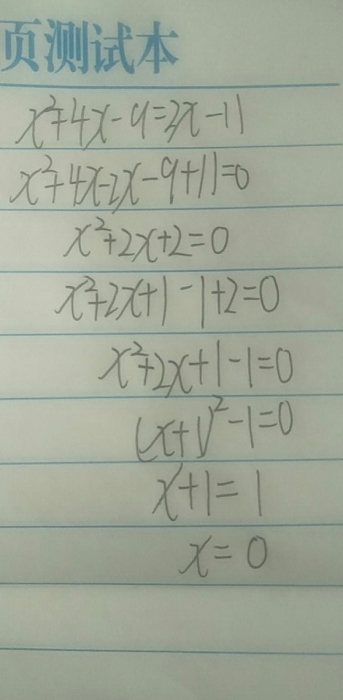 页测试本
x²+4x-9=2x-11
x²+4x-2x-9+11=0
x²+2x+2=0
x²+2x+1-1+2=0
x²+2x+1-1=0
(x+1)²-1=0
x+1=1
x=0